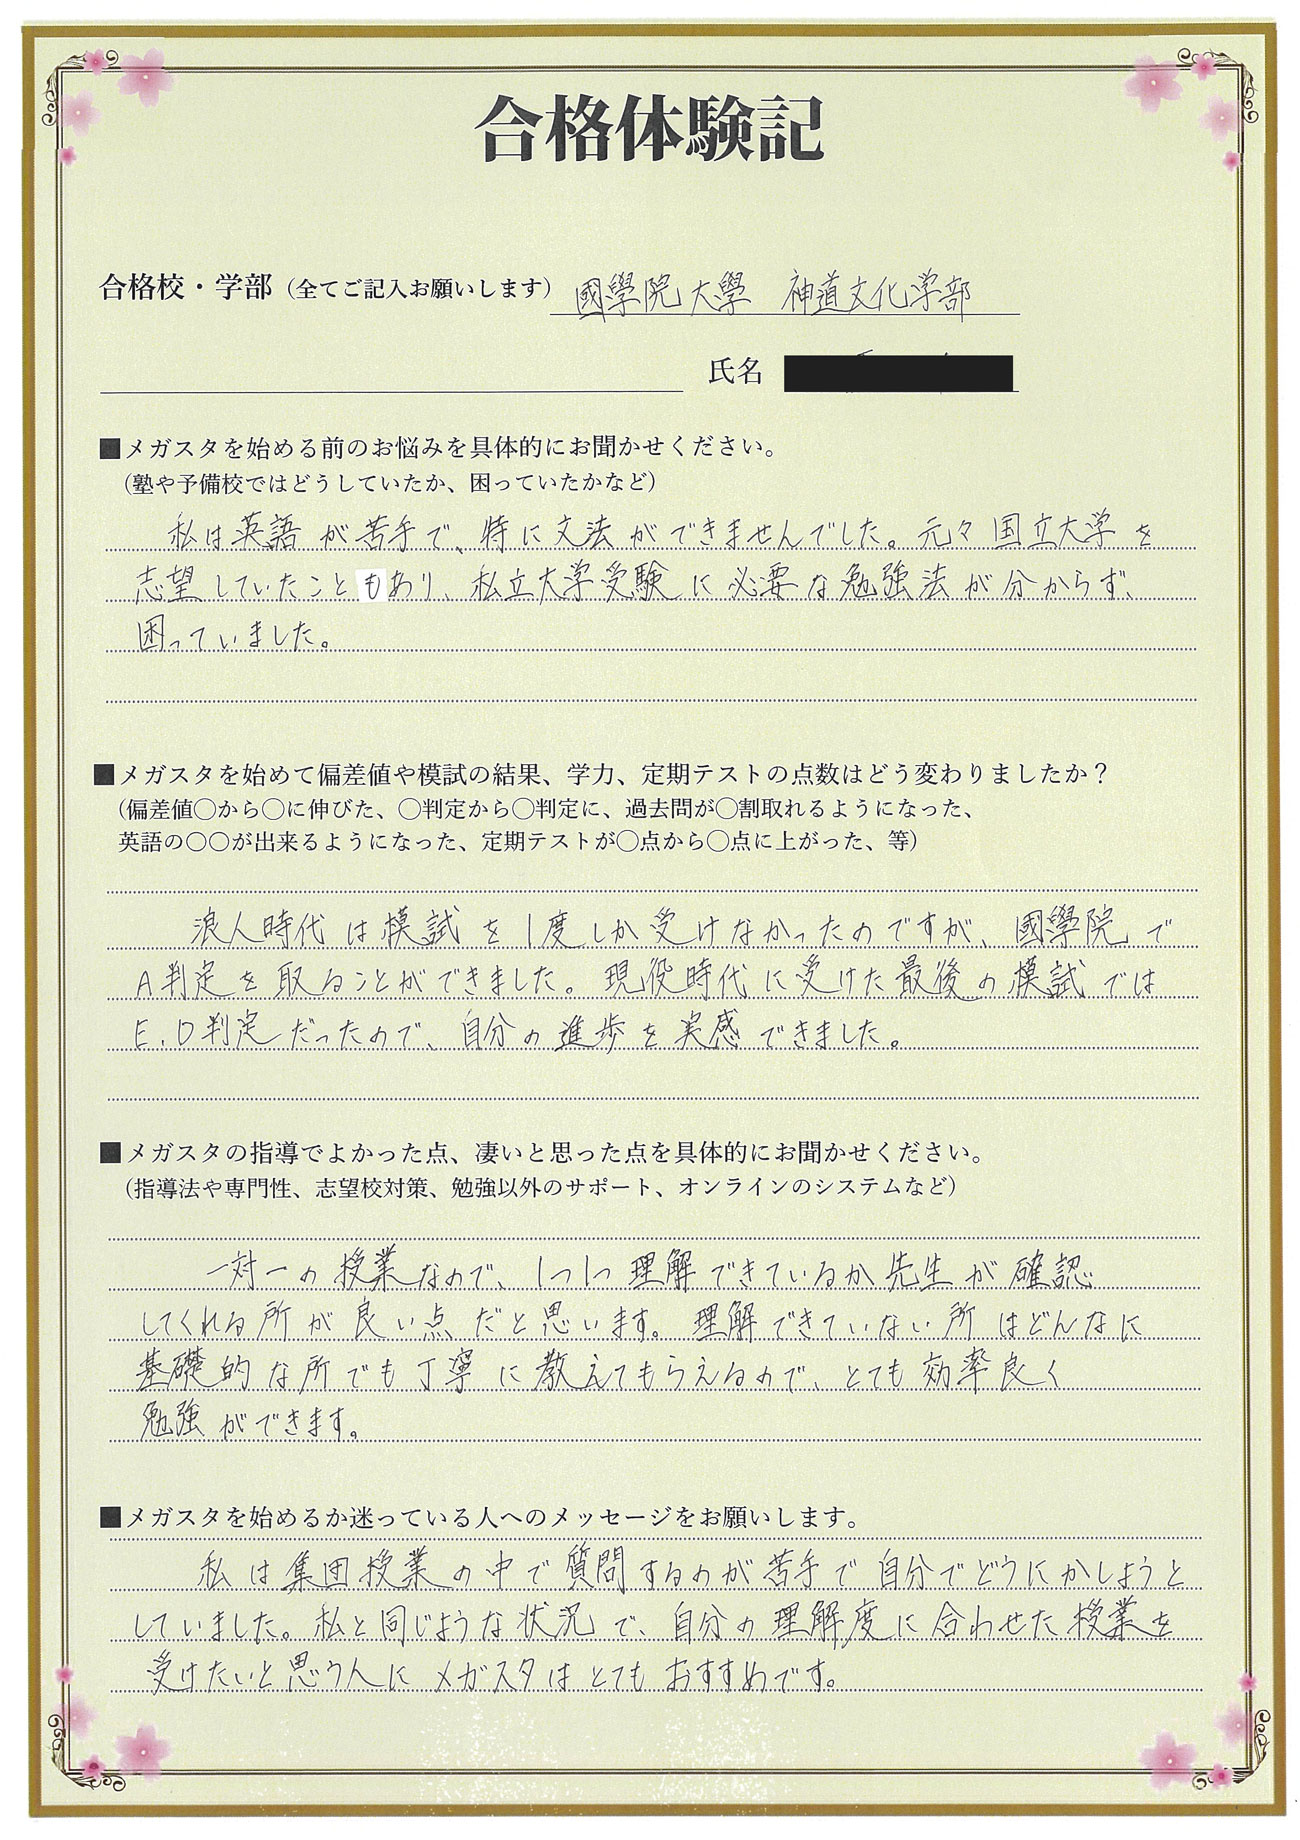 合格体験記
合格校・学部（全てご記入お願いします） 國學院大學 神道文化学部
氏名
■メガスタを始める前のお悩みを具体的にお聞かせください。
（塾や予備校ではどうしていたか、困っていたかなど）
私は英語が苦手で、特に文法ができませんでした。元々国立大学を
志望していたこともあり、私立大学受験に必要な勉強法が分からず、
困っていました。
■メガスタを始めて偏差値や模試の結果、学力、定期テストの点数はどう変わりましたか？
（偏差値〇から〇に伸びた、〇判定から〇判定に、過去問が〇割取れるようになった、
英語の〇〇が出来るようになった、定期テストが〇点から〇点に上がった、等）
浪人時代は模試を1度しか受けなかったのですが、國學院で
A判定を取ることができました。現役時代に受けた最後の模試では
E、D判定だったので、自分の進歩を実感できました。
■メガスタの指導でよかった点、凄いと思った点を具体的にお聞かせください。
（指導法や専門性、志望校対策、勉強以外のサポート、オンラインのシステムなど）
一対一の授業なので、1つ1つ理解できているか先生が確認
してくれる所が良い点だと思います。理解できていない所はどんなに
基礎的な所でも丁寧に教えてもらえるので、とても効率良く
勉強ができます。
■メガスタを始めるか迷っている人へのメッセージをお願いします。
私は集団授業の中で質問するのが苦手で自分でどうにかしようと
していました。私と同じような状況で、自分の理解度に合わせた授業を
受けたいと思う人にメガスタはとてもおすすめです。